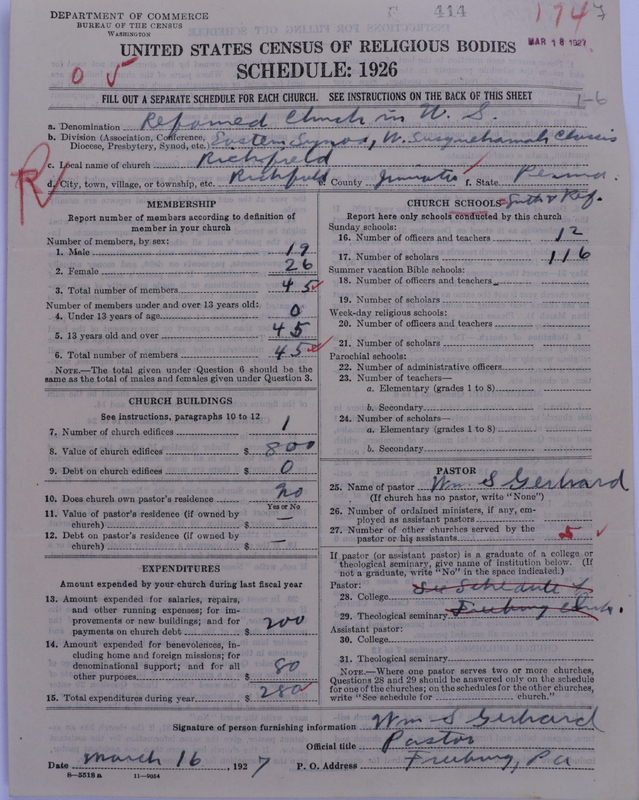 DEPARTMENT OF COMMERCE
BUREAU OF THE CENSUS
WASHINGTON
414
1947
MAR 18 1927
UNITED STATES CENSUS OF RELIGIOUS BODIES
SCHEDULE: 1926
0 5
FILL OUT A SEPARATE SCHEDULE FOR EACH CHURCH. SEE INSTRUCTIONS ON THE BACK OF THIS SHEET
1-6
a. Denomination Reformed Church in U. S.
b. Division (Association, Conference, Diocese, Presbytery, Synod, etc.) Eastern Synod, W. Susquehanna Classis
c. Local name of church Richfield
R
d. City, town, village, or township, etc. Richfield e. County Juniata f. State Penna.
MEMBERSHIP
Report number of members according to definition of member in your church
Number of members, by sex:
1. Male 19
2. Female 26
3. Total number of members 45
Number of members under and over 13 years old:
4. Under 13 years of age 0
5. 13 years old and over 45
6. Total number of members 45
NOTE.—The total given under Question 6 should be same as the total of males and females given under Question 3.
CHURCH BUILDINGS
See instructions, paragraphs 10 to 12
7. Number of church edifices 1
8. Value of church edifices $ 800
9. Debt on church edifices $ 0
10. Does church own pastor's residence no
Yes or No
11. Value of pastor's residence (if owned by church) $ —
12. Debt on pastor's residence (if owned by church) $ —
EXPENDITURES
Amount expended by your church during last fiscal year
13. Amount expended for salaries, repairs, and other running expenses; for improvements or new buildings; and for payments on church debt $ 200
14. Amount expended for benevolences, including home and foreign missions; for denominational support; and for all other purposes $ 80
15. Total expenditures during year $ 280
CHURCH SCHOOLS Luth & Ref.
Report here only schools conducted by this church
Sunday schools:
16. Number of officers and teachers 12
17. Number of scholars 116
Summer vacation Bible schools:
18. Number of officers and teachers
19. Number of scholars
Week-day religious schools:
20. Number of officers and teachers
21. Number of scholars
Parochial schools:
22. Number of administrative officers
23. Number of teachers—
a. Elementary (grades 1 to 8)
b. Secondary
24. Number of scholars—
a. Elementary (grades 1 to 8)
b. Secondary
PASTOR
25. Name of pastor Wm S Gerhard
(If church has no pastor, write "None")
26. Number of ordained ministers, if any, employed as assistant pastors
27. Number of other churches served by the pastor or his assistants 5
If pastor (or assistant pastor) is a graduate of a college or theological seminary, give name of institution below. (If not a graduate, write "No" in the space indicated.)
Pastor:
28. College See Schedule of
29. Theological seminary Freeburg Church.
Assistant pastor:
30. College
31. Theological seminary
NOTE.—Where one pastor serves two or more churches, Questions 28 and 29 should be answered only on the schedule for one of the churches; on the schedules for the other churches, write "See schedule for church."
Signature of person furnishing information Wm S Gerhard
Official title Pastor
Date March 16, 1927 P. O. Address Freeburg, Pa
8—5518 a 11—9054